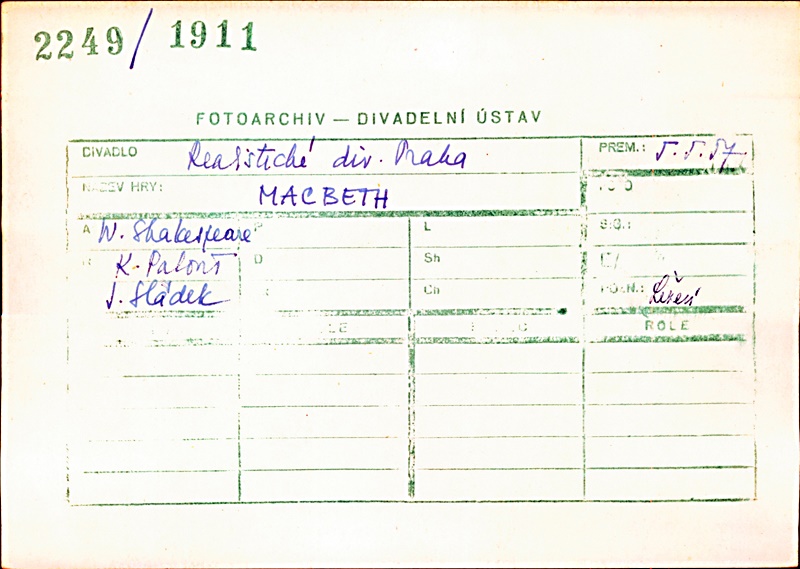 2249/1911
FOTOARCHIV — DIVADELNÍ ÚSTAV
DIVADLO Realistické div. Praha PREM.: 5.5.57
NÁZEV HRY: MACBETH FOTO
A W. Shakespeare P L SIG.:
K. Palouš D Sh
J. Sládek Ch POZN.:
ROLE ROLE